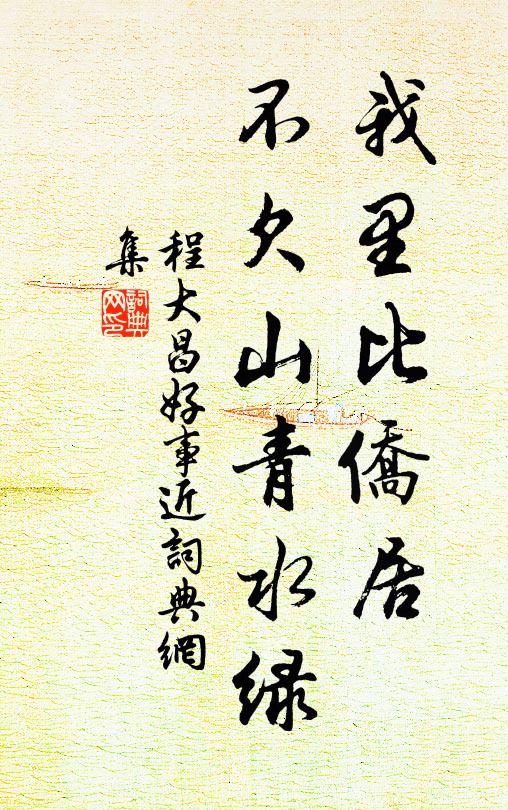 我里比僑居
不欠山青水綠
程大昌好事近詞典網
集
詞典
网印